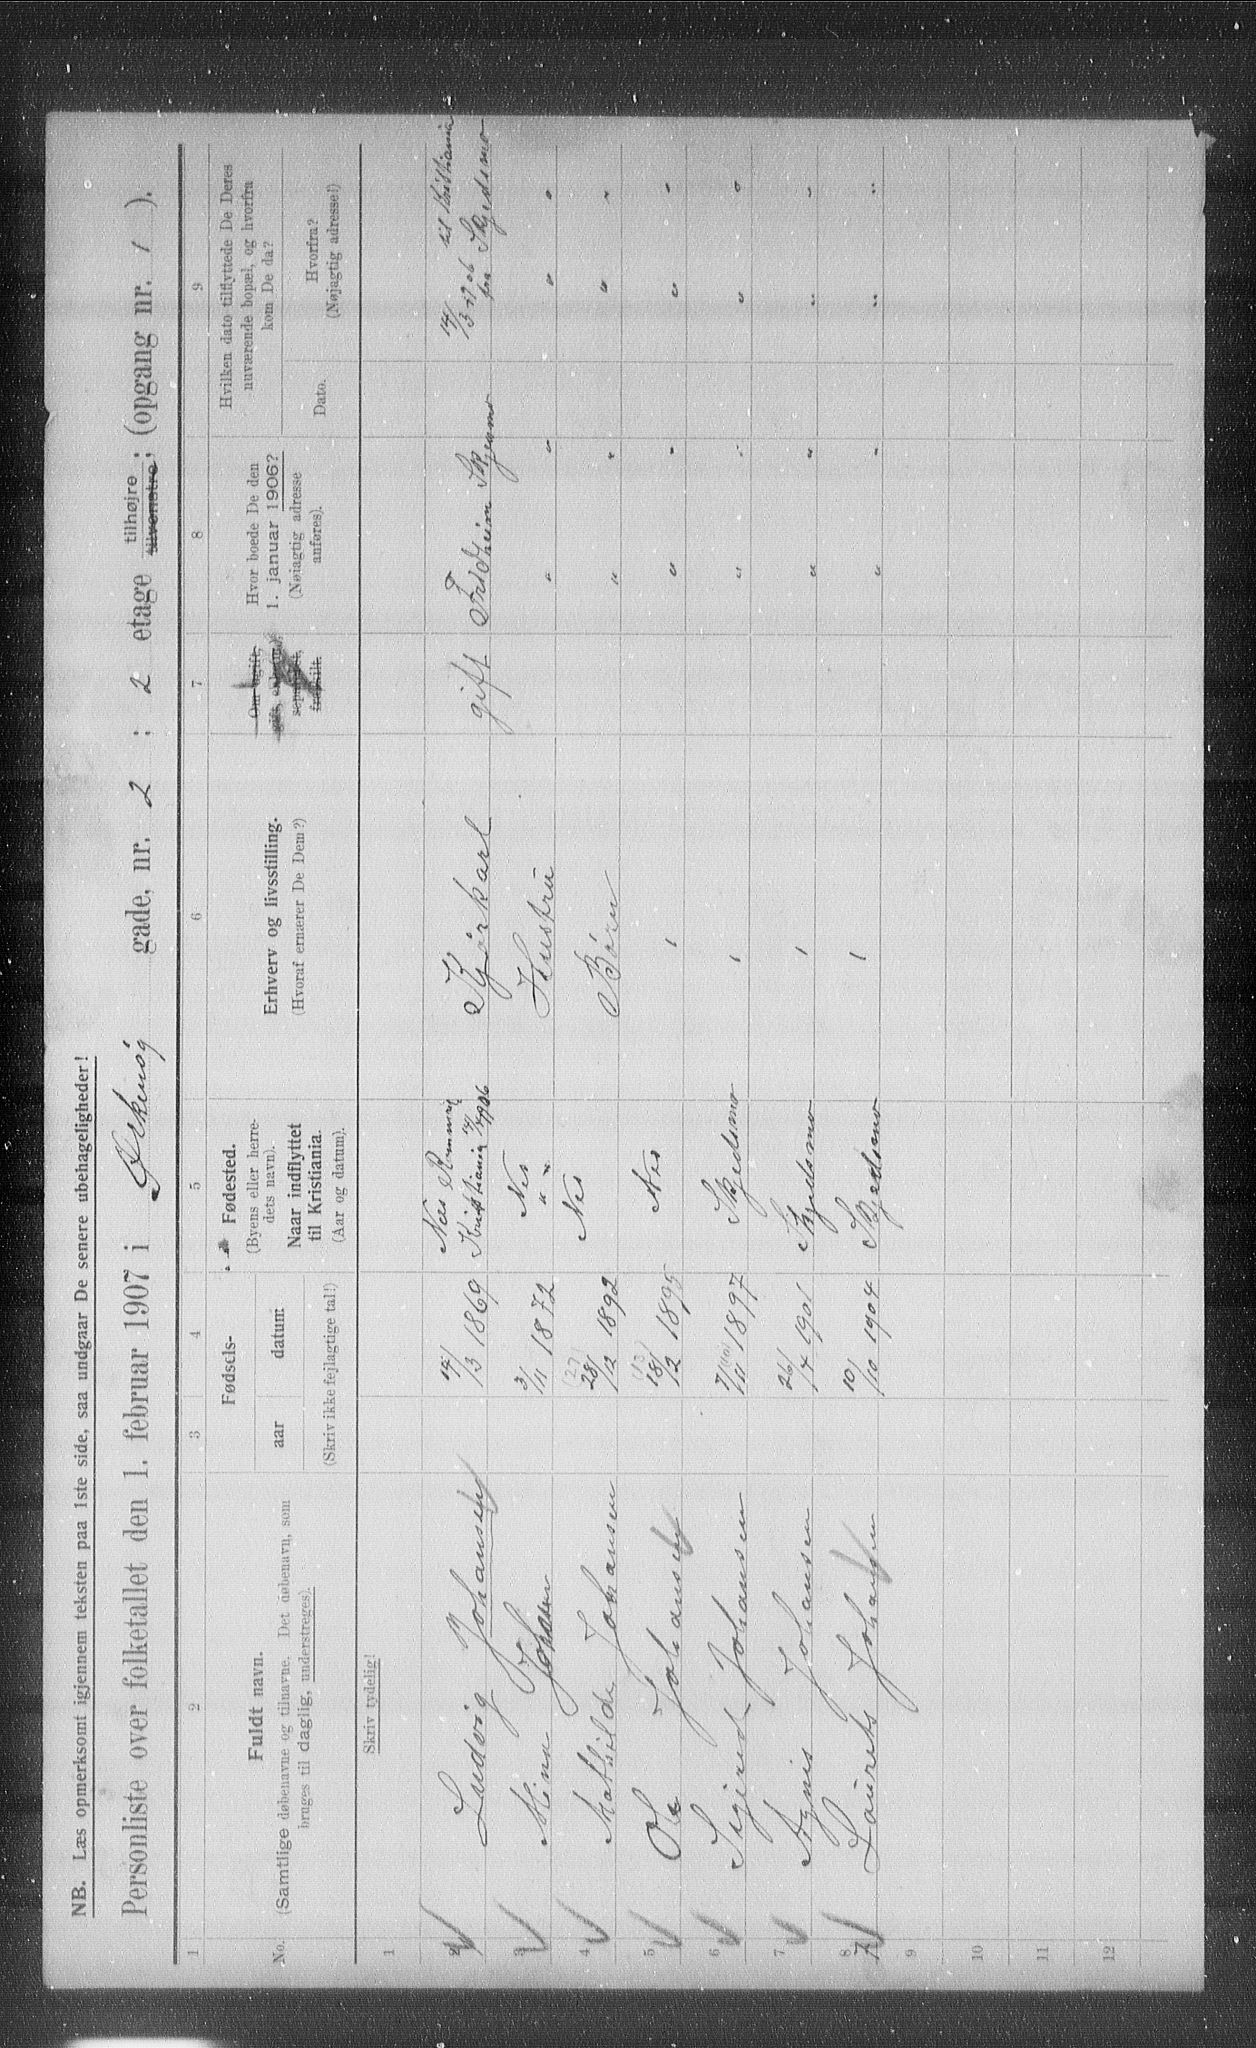 NB. Læs opmerksomt igjennem teksten paa 1ste side, saa undgaar De senere ubehageligheder!
Personliste over folketallet den 1. februar 1907 i gade, nr. 2 ; 2 etage tilhøjre tilvenstre; (opgang nr. 1 ).
1 2 3 4 5 6 7 8 9
No.
Fuldt navn.
(Samtlige døbenavne og tilnavne. Det døbenavn, som
bruges til daglig, understreges).
Fødsels-
aar datum
(Skriv ikke fejlagtige tal!)
Fødested.
(Byens eller herre-
dets navn).
Naar indflyttet
til Kristiania.
(Aar og datum).
Erhverv og livsstilling.
(Hvoraf ernærer De Dem?)
Om ugift,
gift, enke(m.),
separeret,
fraskilt.
Hvor boede De den
1. januar 1906?
(Nøiagtig adresse
anføres).
Hvilken dato tilflyttede De Deres
nuværende bopæl, og hvorfra
kom De da?
Dato.
Hvorfra?
(Nøjagtig adresse!)
Skriv tydelig!
1
2 Ludvig Johansen 14/3 1869 Nes Kristiania 1906 Kjørkarl gift Skjedsmo 14/3 1906 til Kristiania
fra Skjedsmo
3 Johansen 3/11 1872 Nes " " Hustru " " " "
4 Mathilde Johansen (27) 28/12 1892 Nes Børn " " " "
5 Ole Johansen (13) 18/2 1895 Nes " " " "
6 Sigurd Johansen 7/11 1897 Skjedsmo " " " "
7 Agnes Johansen 26/4 1901 Skjedsmo " " " "
8 Laurits Johansen 10/10 1904 Skjedsmo " " " "
7
9
10
11
12